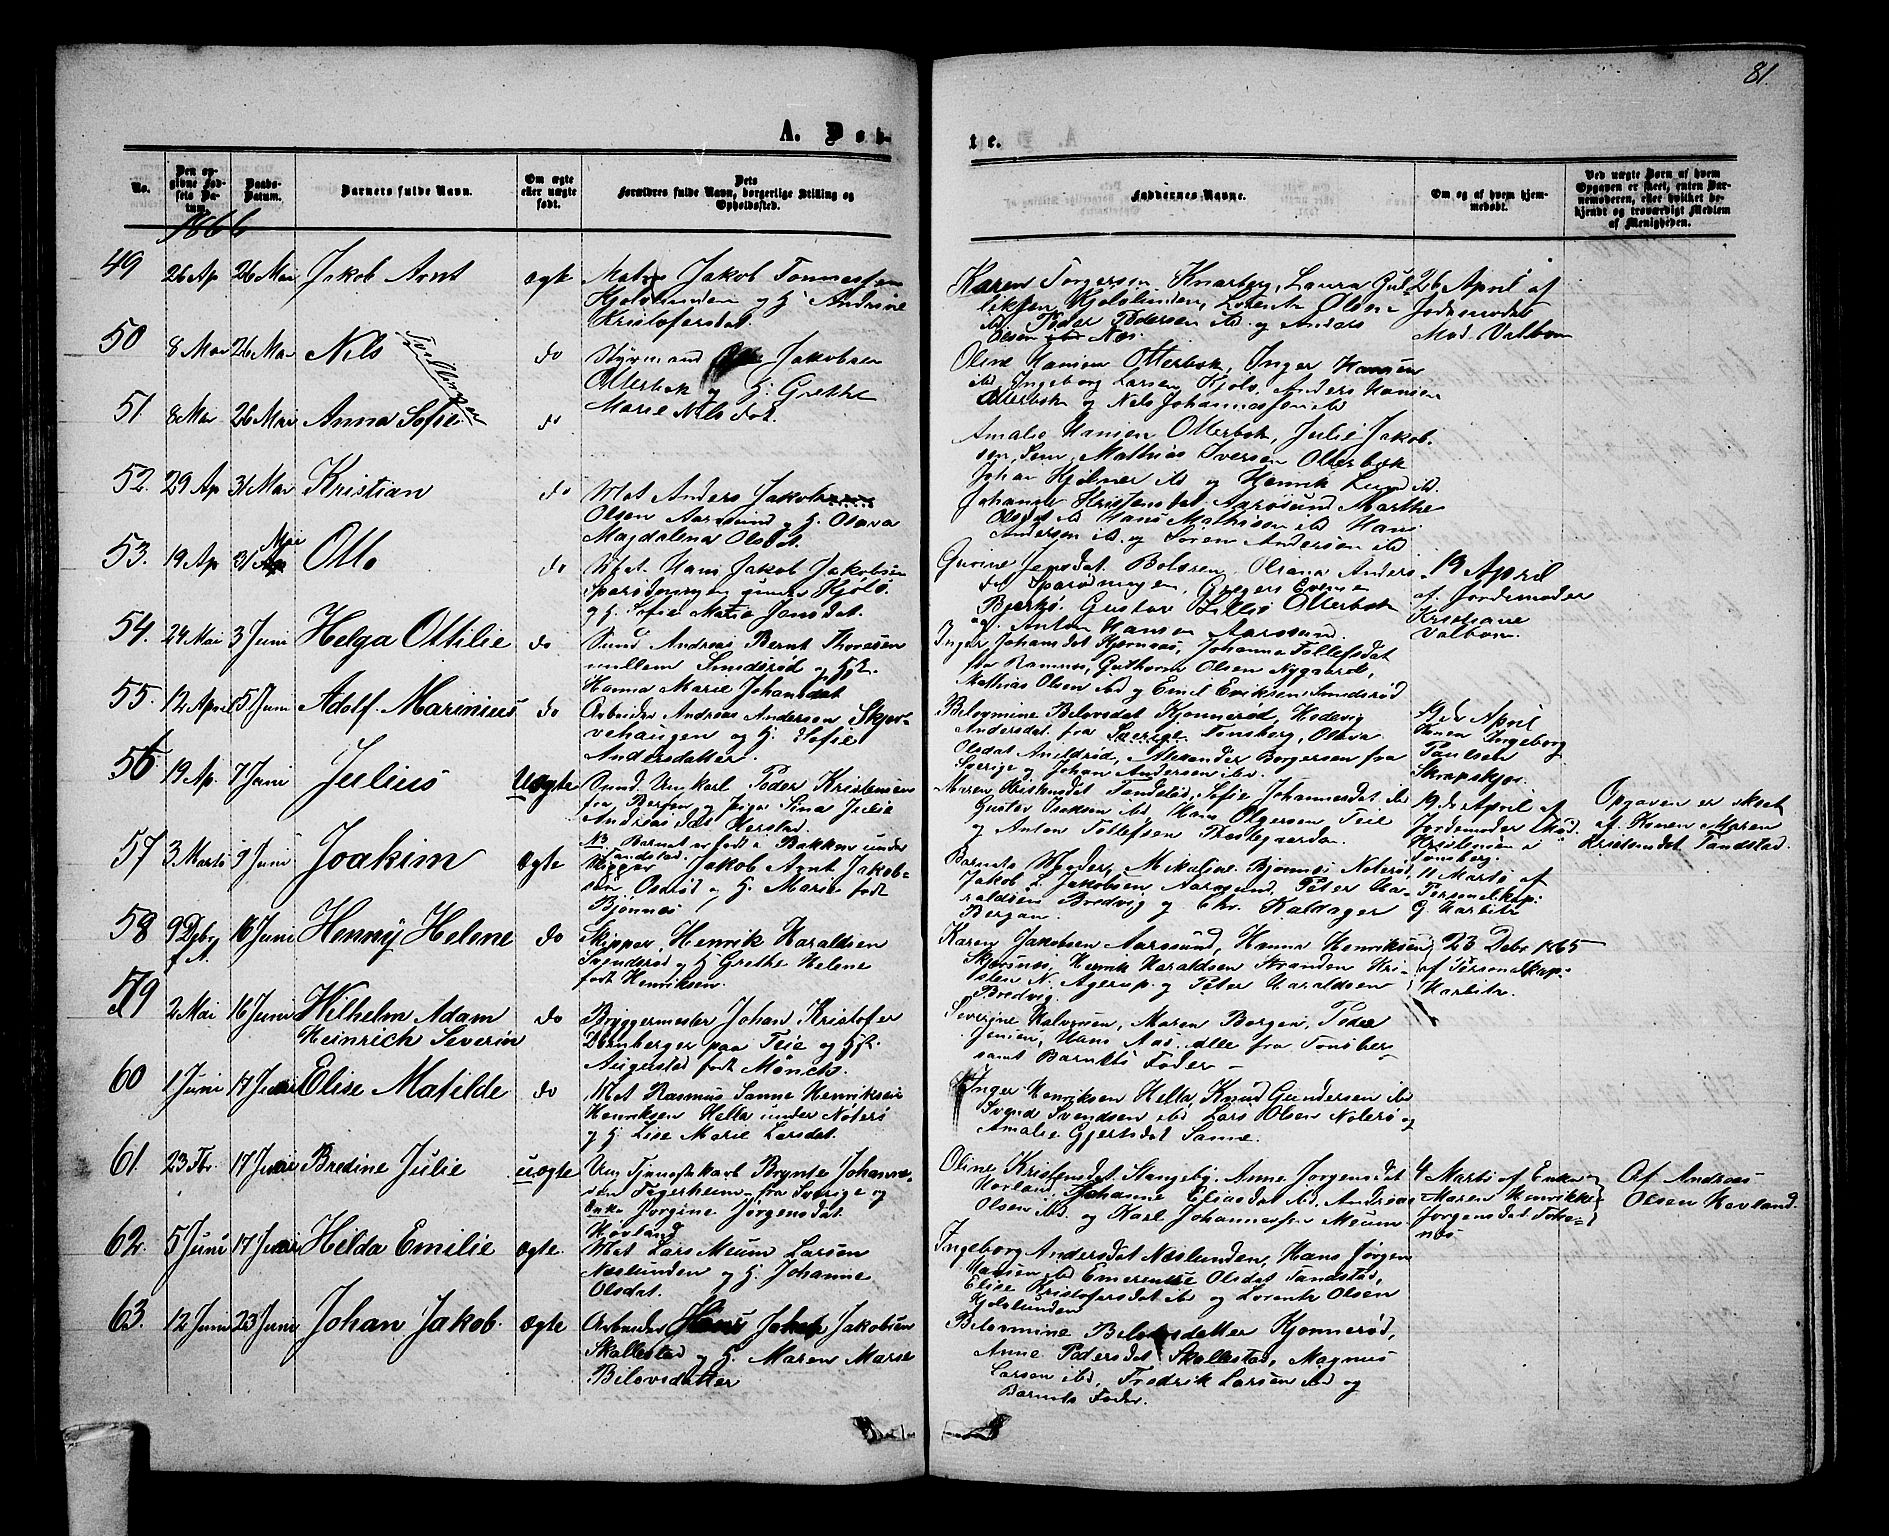 81.
A. Døb-
te.
No.
Den op-
givne Fød-
sels Da-
tum.
Daabs-
Datum.
Barnets fulde Navn.
Om ægte
eller uægte
født.
Dets
Forældres fulde Navn, borgerlige Stilling og
Opholdssted.
Faddernes Navne.
Om og af hvem hjem-
medøbt.
Ved uægte Børn af hvem
Opgaven er skeet, enten Bar-
nemoderen, eller hvilket be-
kjendt og troværdigt Medlem
af Menigheden.
1866
49 26 Ap 26 Mai Jakob Arnt ægte Matros Jakob Tønnessen
Kjølolunden og H. Andrine
Kristofersdat.
Karen Torgersen Knarberg, Laura Gul-
liksen Kjølolunden, Lorents Olsen
ibd. Peder Pedersen ibd og Anders
Olsen Næs.
26 April af
Jordemoder
Mad. Valbom
50 8 Mai 26 Mai Nils do Styrmand Jakobsen
Otterbek og H. Grethe
Marie Nilsdat.
Tvillinger
Oline Hansen Otterbek, Inger Hansen
ibd, Ingeborg Larsen, Kjølø, Anders Hansen
Otterbek og Nels Johannessen ibd
51. 8 Mai 26 Mai Anna Sofie do
Amalie Hansen Otterbek, Julie Jakob-
sen, Mathias Iversen Otterbek
Johan Hjelner ibd og Henrik Lund ibd.
52. 29 Ap 31 Mai Kristian do Mat Anders Jakob
Olsen Aarøsund og H. Olava
Magdalena Olsdat.
Johanne Kristensdat Aarøsund Marthe
Olsdat ibd Hans Mathisen ibd Hans
Andersen ibd. og Søren Andersen ibd
53. 19 Ap 31 Mai Otto do Mat. Hans Jakob Jakobsen
under Kjølø.
og H. Sofie Matia Jansdat.
Gurine Jensdat Bolæren, Olsana Anders-
dat, Gregers Evensen
Bjerkø. Gustav Lillio Otterbek
og Anton Hansen Aarøsund.
19 April
af Jordemoder
Kristiane
Valbom.
54. 24 Mai 3 Juni Helga Ottilie do Snmd Andreas Bernt Thoresen
mellem Smidsrød og Hst.
Hanna Marie Johansdat
Inger Johansdat Kjernaas, Johanna Tollefsdat
fra Ramnæs, Guthorm Olsen Nygaard,
Mathias Olsen ibd og Emil Eriksen Smidsrød
55. 12 April 5 Juni Adolf Marinius do Arbeider Andreas Andersen Skjer-
vehaugen og H. Sofie
Andersdatter.
Bilovmine Bilovsdat Kjønnerød, Hedevig
Andersdat. fra Sverige, Tønsberg, Olava
Olsdat Arildrød, Alexander Borgersen fra
Sverige og Johan Andersen ibd.
19de April
Konen Ingeborg
Paulsen
56 19 Ap. 7 Juni Julius Uægte Snmd. Ungkarl Peder Kristensen
fra Bergen og Pige Sina Julie
Andreasdat Herstad.
NB Barnet er født i Bakken under
Tandstad.
Maren Kristensdat Tandstad, Sofie Johannesdat ibd
Gustav Isaksen ibd, Hans Olgersen Teie
og Anton Tollefsen Præstegaarden.
19de April af
Jordemoder
Kristensen i
Tønsberg.
Opgaven er skeet
af Konen Maren
Kristensdat Tandstad.
57 3 Marts 9 Juni Joakim ægte Skipper Jakob Arnt Jakob-
sen Oserød og H. Marie født
Bjønnes
Barnets Moder, Mikaline Bjønnes Noterø,
Jakob L. Jakobsen Aarøsund, Peter Ha-
raldsen Bredvig og Chr. Kaldager
Bergan.
11 Marts af
Personelkap:
G. Harbitz
58 9 Debr
f. A. 16 Juni Henny Helene do Skipper Henrik Haraldsen
Svenderød og H Grethe Helene
født Henriksen.
Karen Jakobsen Aarøsund, Hanna Henriksen
Skjærsnæs, Henrik Haraldsen Stranden Kri-
sten N. Agerup og Peter Haraldsen
Bredvig.
23 Debr 1865
af Personelkap:
Harbitz.
59 2 Mai 16 Juni Wilhelm Adam
Heinrich Severin do Bryggermester Johan Kristofer
Dornberger paa Teie og Hst.
Augusta født Mönch.
Severine Halvorsen, Maren Borgen, Peder
Jensen, Hans Aas, alle fra Tønsberg
samt Barnets Fader —
60 1 Juni 17 Juni Elise Matilde do Mat Rasmus Sanne Henriksen
Henriksen Hella under Nøterø
og H. Lise Marie Larsdat.
Inger Henriksen Hella, Knud Gundersen ibd
Svend Svendsen ibd Lars Olsen Nøterø og
Amalie Gjertsdat Sanne.
61. 23 Fbr. 17 Juni Bredine Julie uægte Ung Tjenestekarl Brynte Johanne-
sen Tegerheim fra Sverige og
Enke Jørgine Jørgensdat.
Hovland
Oline Kristensdat Stangeby, Anne Jørgensdat
Hovland, Johanne Eliasdat ibd, Andreas
Olsen ibd. og Karl Johannessen Meum
4 Marts af Enke
Maren Henrikke
Jørgensdat Foke-
næs
Af Andreas
Olsen Hovland.
62. 5 Juni 17 Juni Hilda Emilie ægte. Mat Lars Meum Larsen
Næslunden og H. Johanne
Olsdat.
Ingeborg Andersdat Næslunden, Hans Jørgen
Hansen ibd Emerentse Olsdat Tandstad,
Elise Kristofersdat ibd og Lorents Olsen
Kjølolunden
63. 12 Juni 23 Juni Johan Jakob. ægte Arbeider Hans Jakob Jakobsen
Skallestad og H. Maren Marie
Bilovsdatter
Bilovmine Bilovsdatter Kjønnerød,
Anne Pedersdat Skallestad, Magnus
Larsen ibd, Fredrik Larsen ibd og
Barnets Fader.